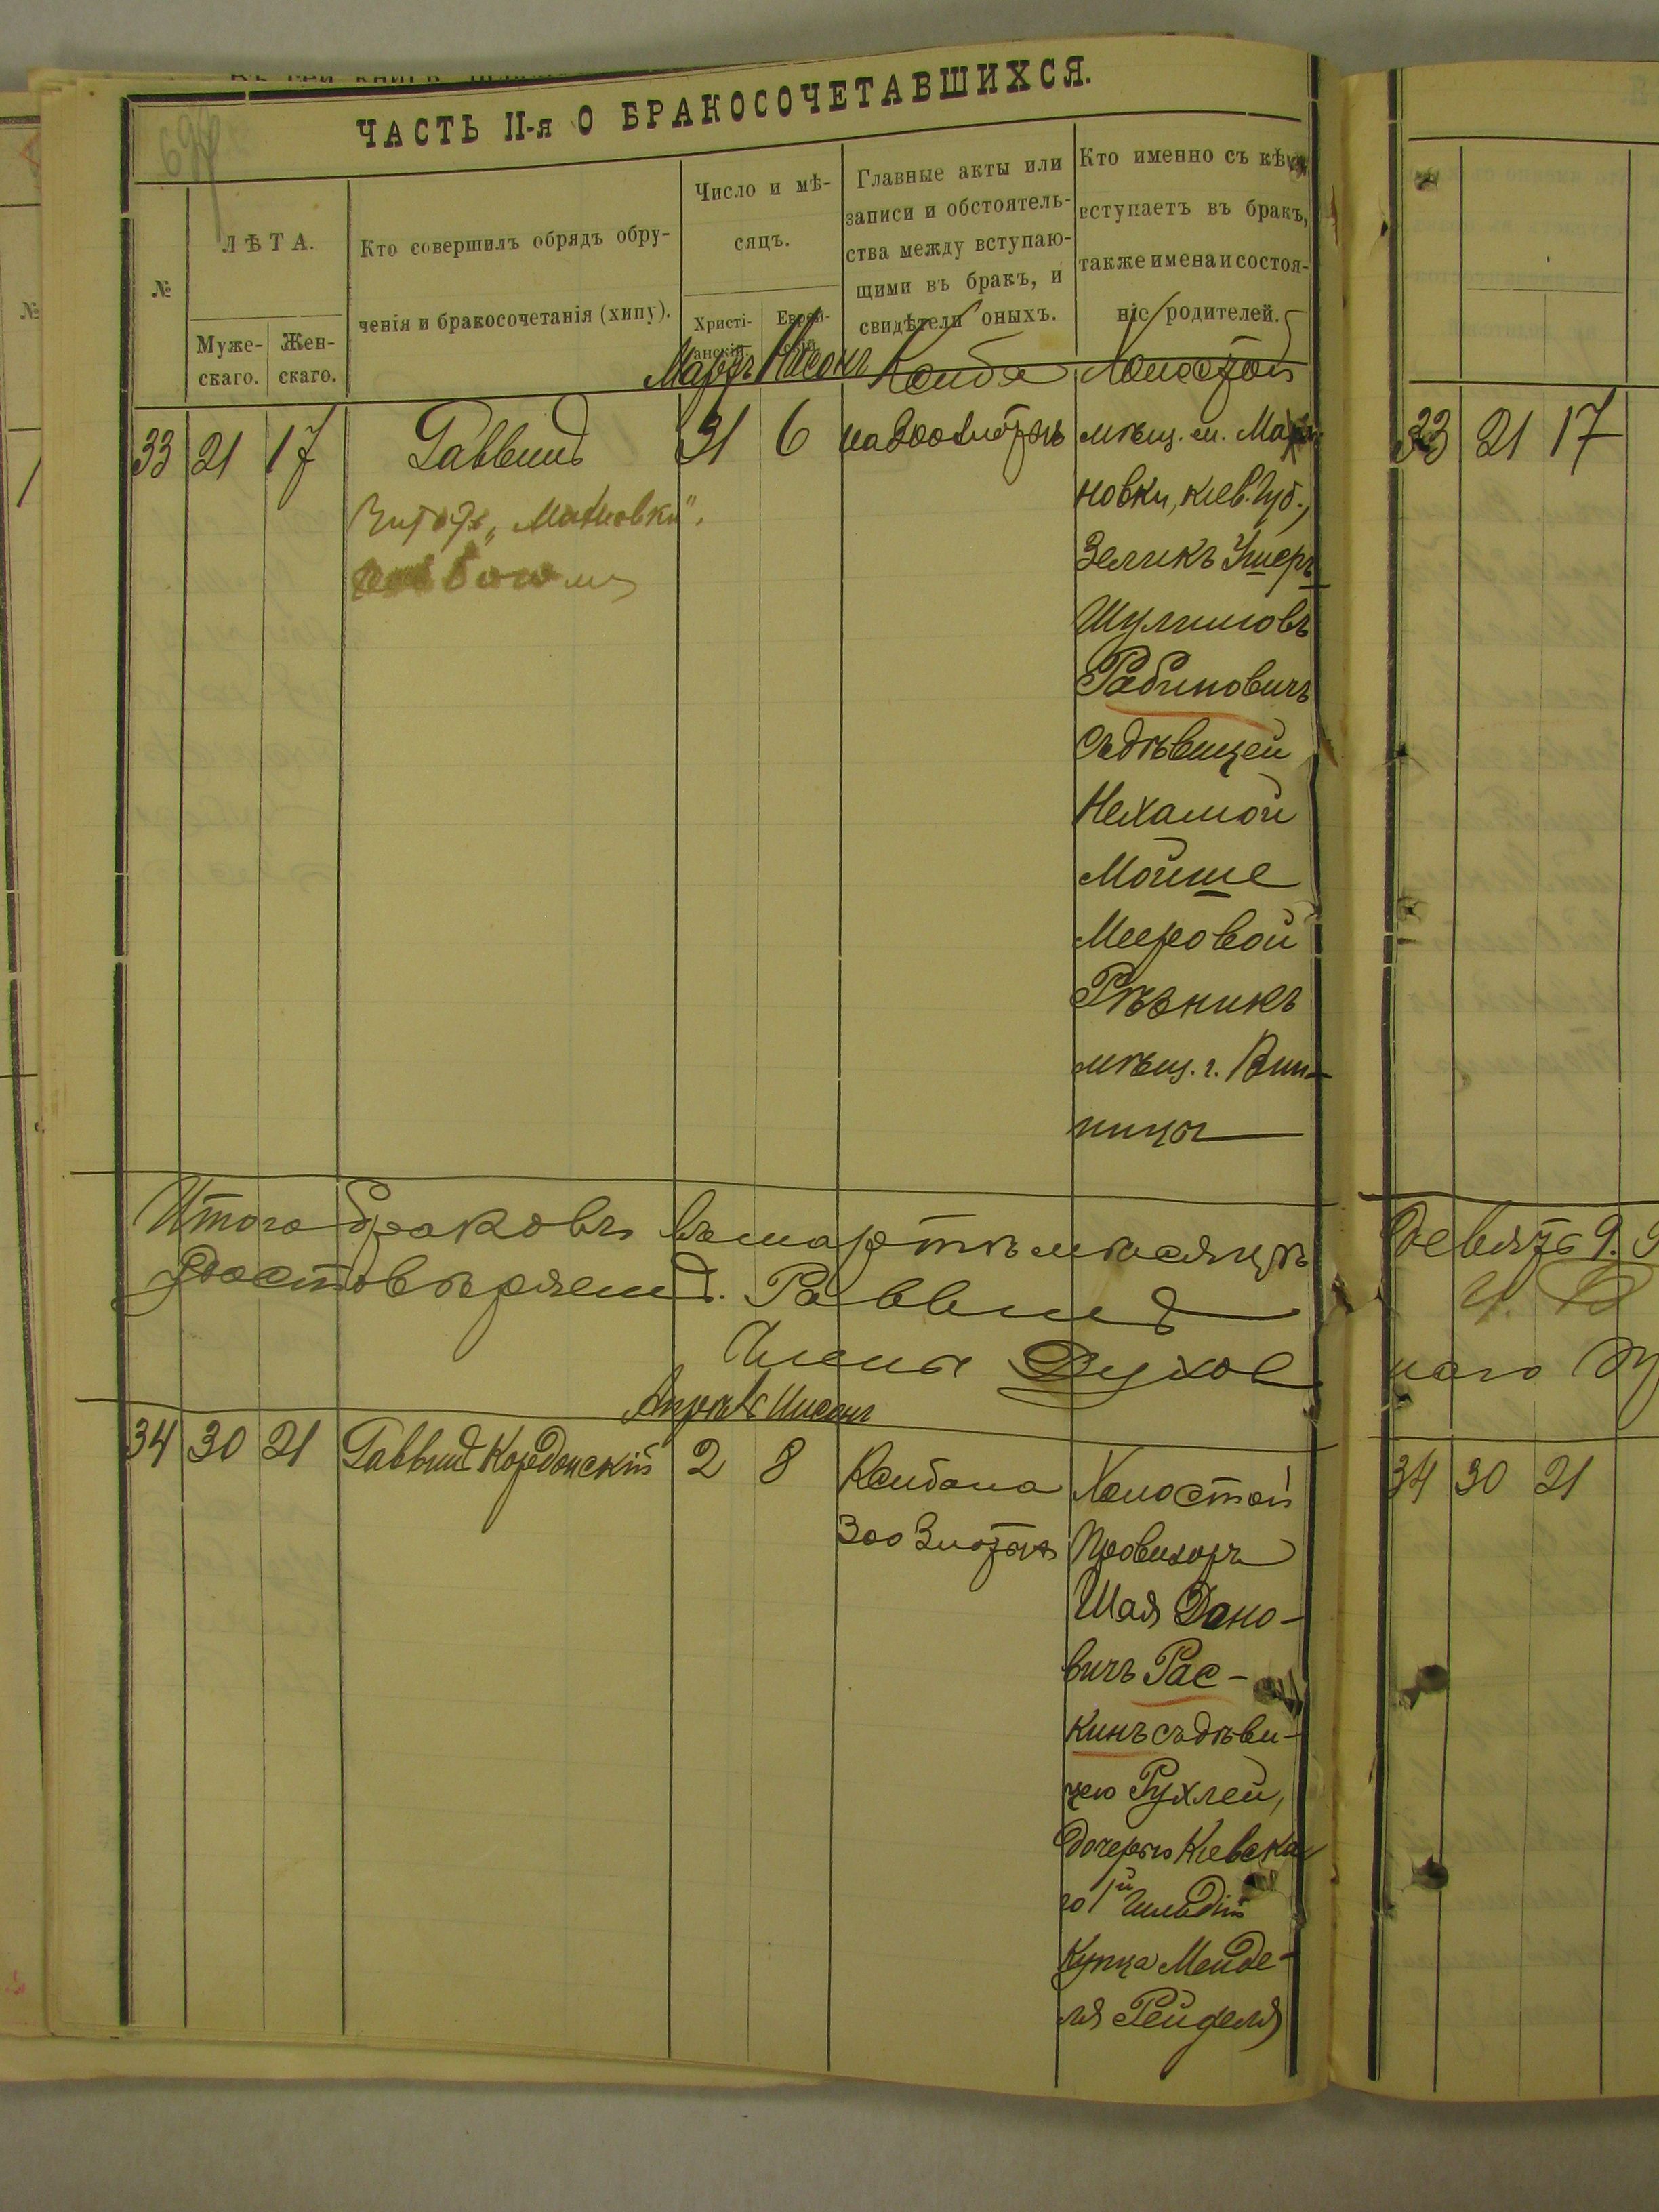 ЧАСТЬ II-я О БРАКОСОЧЕТАВШИХСЯ.
№
ЛѢТА.
Муже-
скаго.
Жен-
скаго.
Кто совершилъ обрядъ обру-
ченія и бракосочетанія (хипу).
Число и мѣ-
сяцъ.
Христі-
анскій.
Еврей-
скій.
Главные акты или
записи и обстоятель-
ства между вступаю-
щими въ бракъ, и
свидѣтели оныхъ.
Кто именно съ кѣмъ
вступаетъ въ бракъ,
также имена и состоя-
ніе родителей.
Мартъ Нисонъ
33 21 17 Раввинъ 31 6
Кситба
на 200 злотыхъ
Холостой
мѣщ. м.
новки, Кіев. Губ.,
Зеликъ Ушеръ
Шулимовъ
Рабиновичъ
съ дѣвицей
Нехамой
Мойше
Мееровой
Рѣзникъ
мѣщ. г. Вин-
ницы
Итого браковъ въ мартѣ мѣсяцѣ
Достовѣряемъ. Раввинъ
Члены Духов
Апрѣль Нисонъ
34 30 21 Раввинъ Кордонскій 2 8
Кситба на
300 Злотыхъ
Холостой
Провизоръ
Шая Дано-
вичъ Рас-
кинъ съ дѣви-
цею Рухлей,
дочерью Кіевска
го 1й гильдіи
Купца Менде-
ля Рейделя
33 21 17
девять 9.
наго
34 30 21